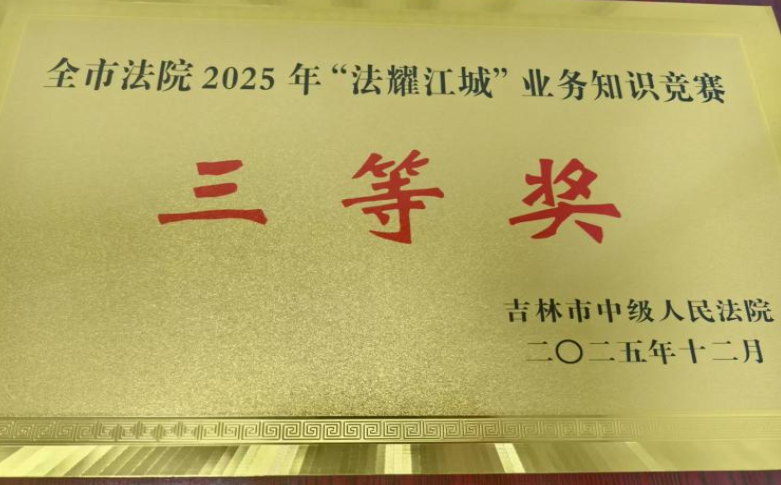 全市法院 2025 年“法耀江城”业务知识竞赛
三等奖
吉林市中级人民法院
二〇二五年十二月